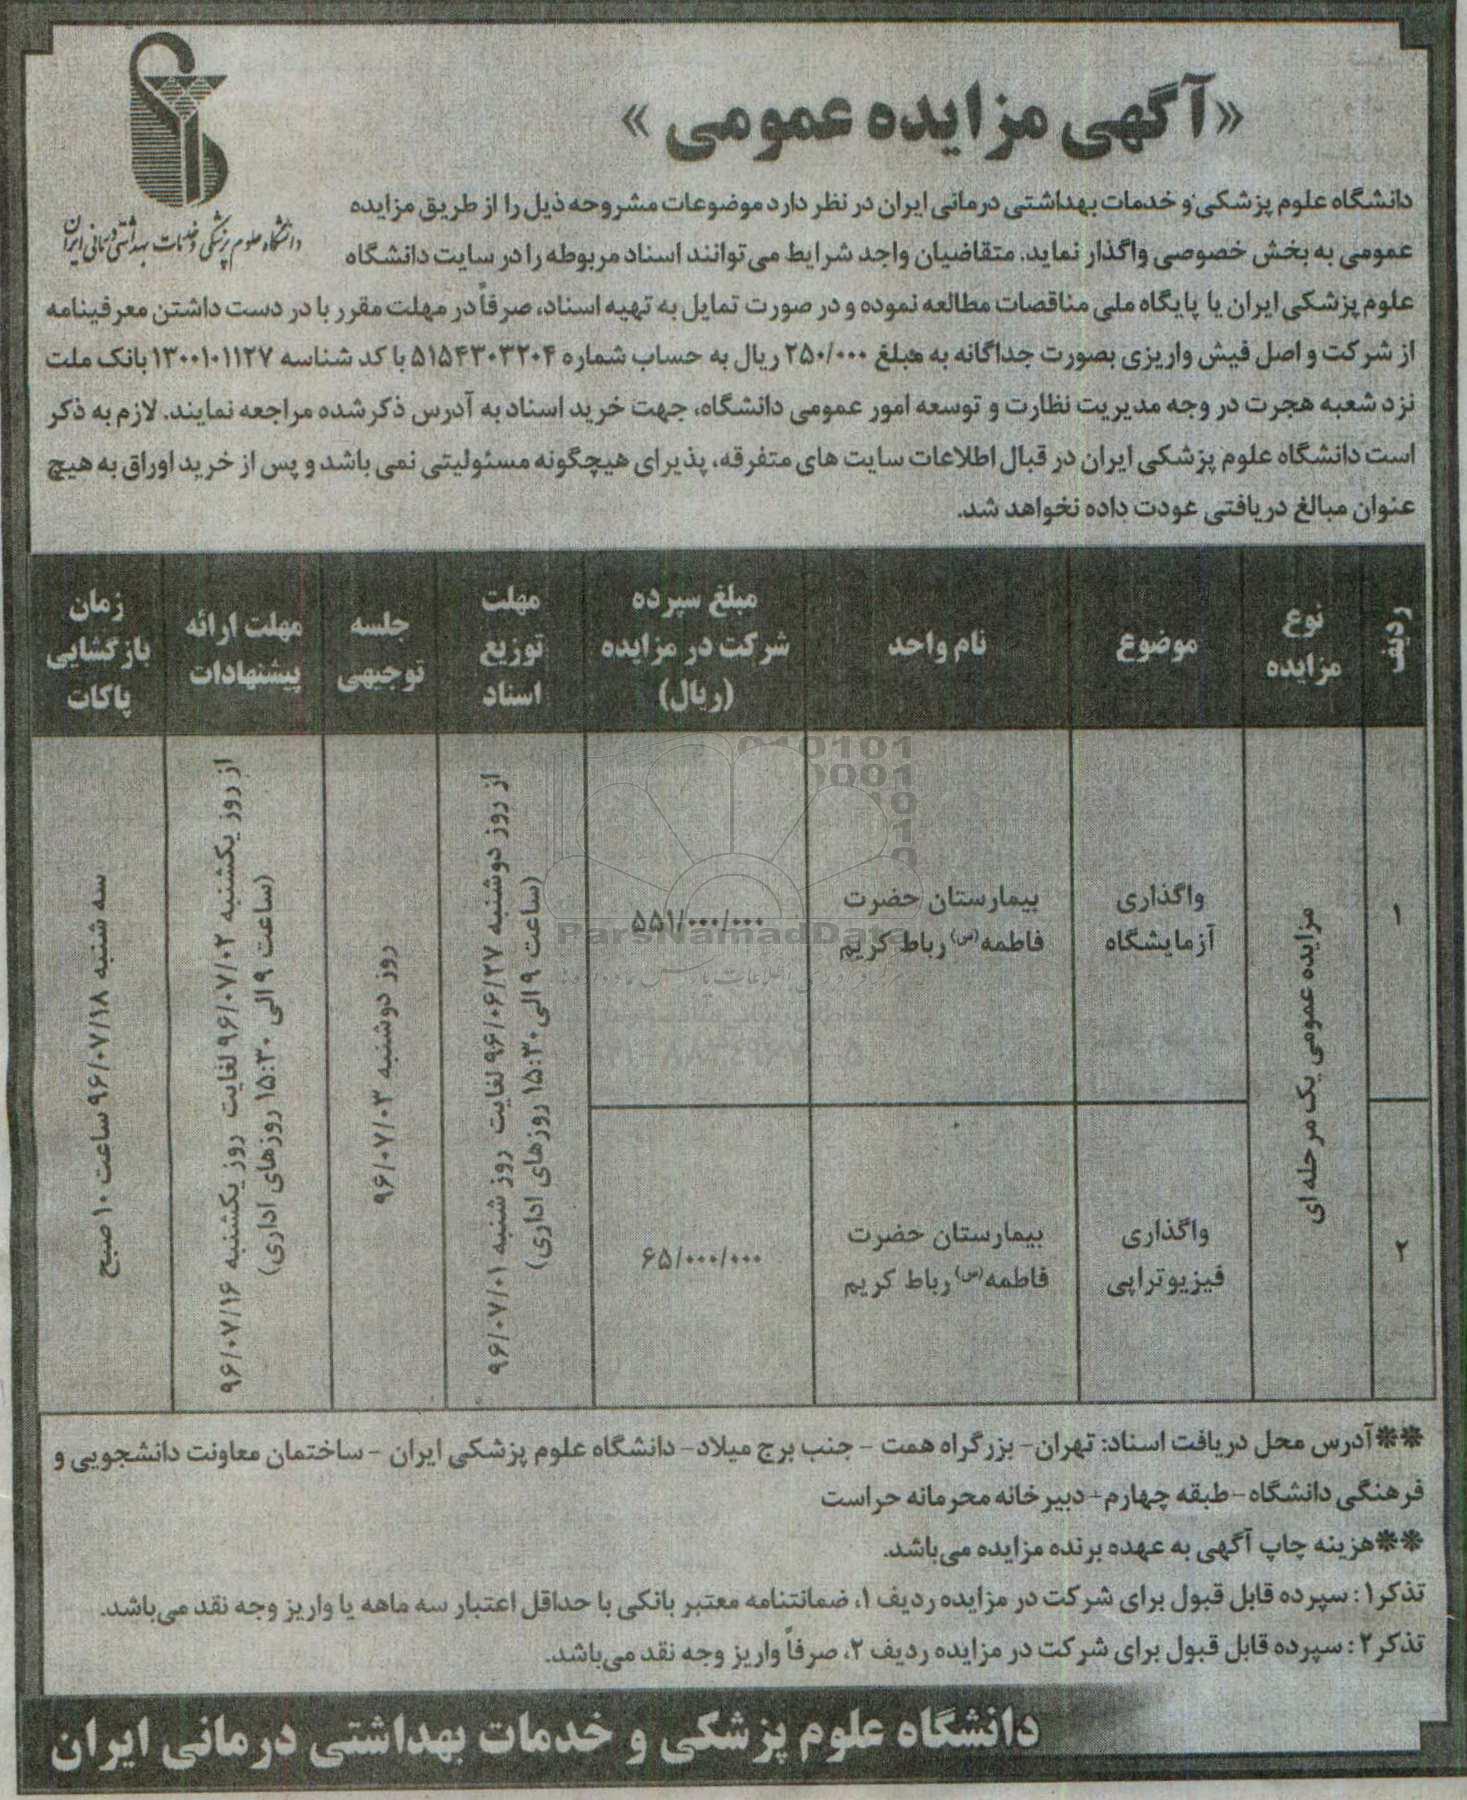 «آگهی مزایده عمومی»
دانشگاه علوم پزشکی و خدمات بهداشتی درمانی ایران
دانشگاه علوم پزشکی و خدمات بهداشتی درمانی ایران در نظر دارد موضوعات مشروحه ذیل را از طریق مزایده
عمومی به بخش خصوصی واگذار نماید. متقاضیان واجد شرایط می‌توانند اسناد مربوطه را در سایت دانشگاه
علوم پزشکی ایران یا پایگاه ملی مناقصات مطالعه نموده و در صورت تمایل به تهیه اسناد، صرفاً در مهلت مقرر با در دست داشتن معرفینامه
از شرکت و اصل فیش واریزی بصورت جداگانه به مبلغ ۲۵۰/۰۰۰ ریال به حساب شماره ۵۱۵۴۳۰۳۲۰۴ با کد شناسه ۱۳۰۰۱۰۱۱۲۷ بانک ملت
نزد شعبه هجرت در وجه مدیریت نظارت و توسعه امور عمومی دانشگاه، جهت خرید اسناد به آدرس ذکر شده مراجعه نمایند. لازم به ذکر
است دانشگاه علوم پزشکی ایران در قبال اطلاعات سایت های متفرقه، پذیرای هیچگونه مسئولیتی نمی باشد و پس از خرید اوراق به هیچ
عنوان مبالغ دریافتی عودت داده نخواهد شد.
ردیف
نوع
مزایده
موضوع
نام واحد
مبلغ سپرده
شرکت در مزایده
(ریال)
مهلت
توزیع
اسناد
جلسه
توجیهی
مهلت ارائه
پیشنهادات
زمان
بازگشایی
پاکات
۱
مزایده عمومی یک مرحله ای
واگذاری
آزمایشگاه
بیمارستان حضرت
فاطمه(س) رباط کریم
۵۵۱/۰۰۰/۰۰۰
از روز دوشنبه ۹۶/۰۶/۲۷ لغایت روز شنبه ۹۶/۰۷/۰۱
(ساعت ۹ الی ۱۵:۳۰ روزهای اداری)
روز دوشنبه ۹۶/۰۷/۰۳
از روز یکشنبه ۹۶/۰۷/۰۲ لغایت روز یکشنبه ۹۶/۰۷/۱۶
(ساعت ۹ الی ۱۵:۳۰ روزهای اداری)
سه شنبه ۹۶/۰۷/۱۸ ساعت ۱۰ صبح
۲
واگذاری
فیزیوتراپی
بیمارستان حضرت
فاطمه(س) رباط کریم
۶۵/۰۰۰/۰۰۰
ParsNamadData
**آدرس محل دریافت اسناد: تهران- بزرگراه همت - جنب برج میلاد- دانشگاه علوم پزشکی ایران - ساختمان معاونت دانشجویی و
فرهنگی دانشگاه -طبقه چهارم- دبیرخانه محرمانه حراست
**هزینه چاپ آگهی به عهده برنده مزایده می‌باشد.
تذکر۱: سپرده قابل قبول برای شرکت در مزایده ردیف ۱، ضمانتنامه معتبر بانکی با حداقل اعتبار سه ماهه یا واریز وجه نقد می‌باشد.
تذکر۲: سپرده قابل قبول برای شرکت در مزایده ردیف ۲، صرفاً واریز وجه نقد می‌باشد.
دانشگاه علوم پزشکی و خدمات بهداشتی درمانی ایران